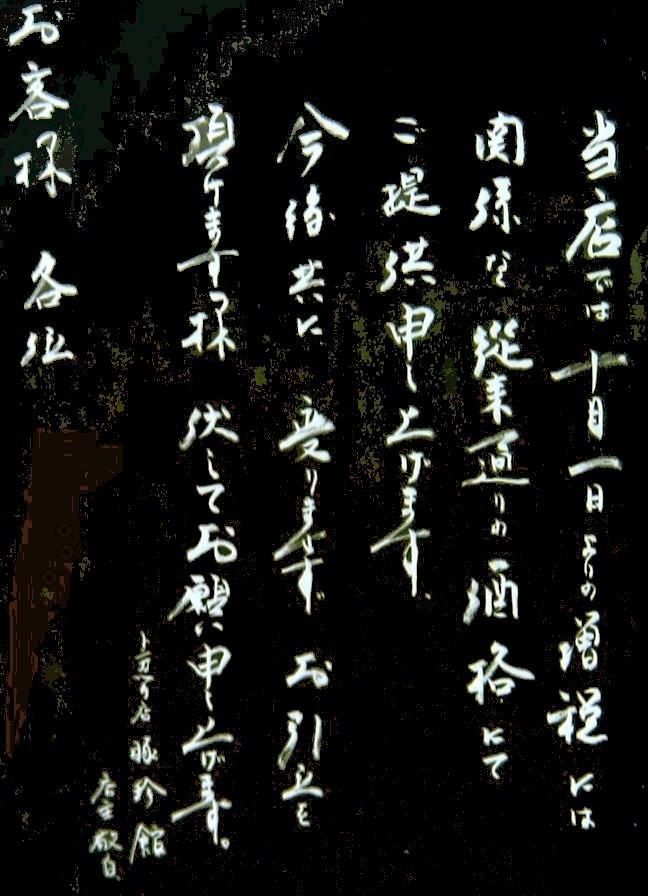 当店では十月一日よりの増税には
関係なく従来通りの価格にて
ご提供申し上げます。
今後共に変りませず お引立を
頂けます様 伏してお願い申し上げます。
豚珍館
店主敬白
お客様 各位